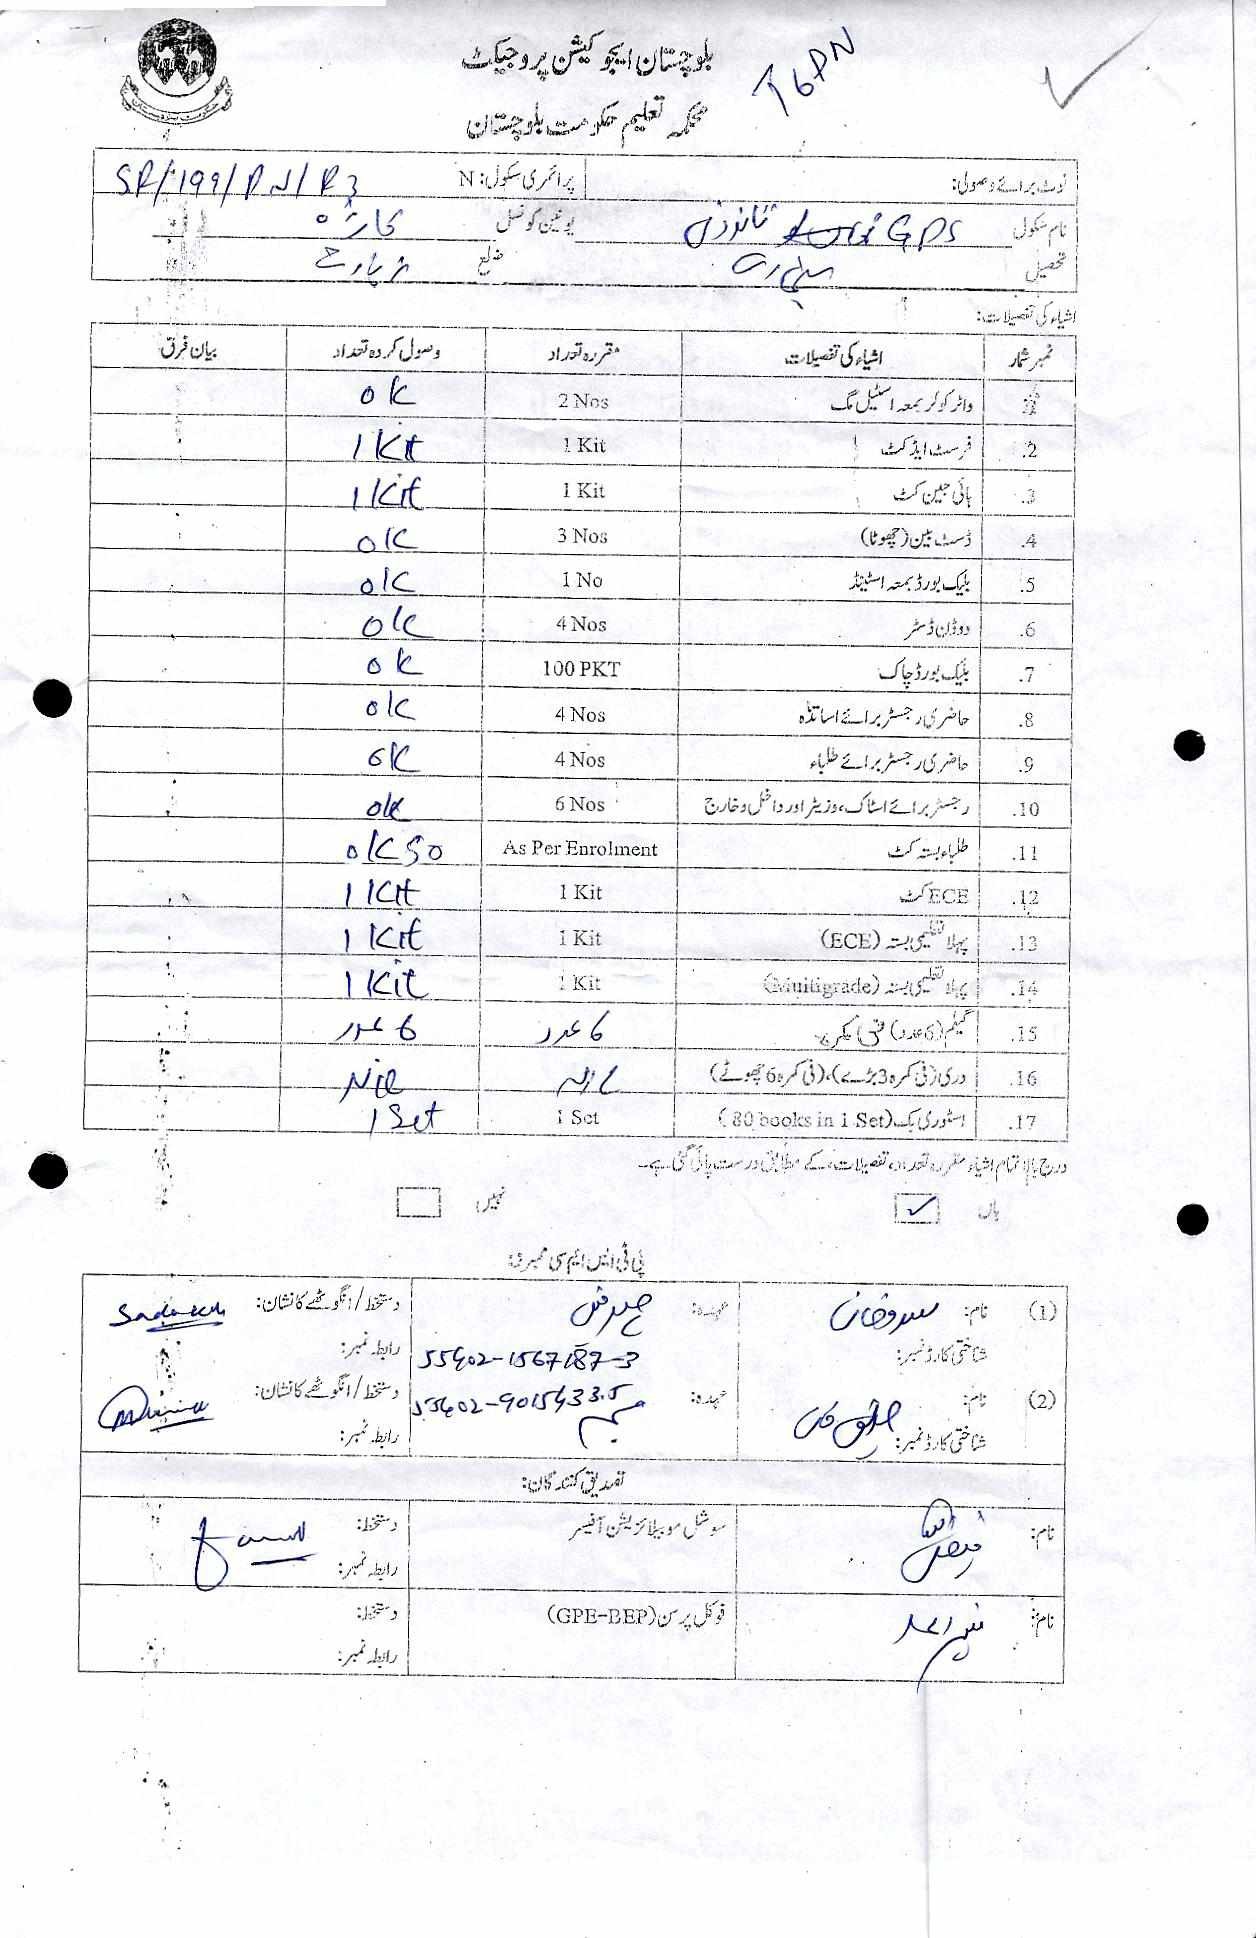 بلوچستان ایجوکیشن پروجیکٹ
محکمہ تعلیم حکومت بلوچستان
حکومت بلوچستان
نوٹ برائے وصولی: پرائمری سکول: N SR/199/PN/R3
نام سکول GPS یونین کونسل
تحصیل ضلع
اشیاء کی تفصیلات:
نمبر شمار اشیاء کی تفصیلات مقررہ تعداد وصول کردہ تعداد بیان فرق
.1 واٹر کولر بمعہ اسٹیل مگ 2 Nos ok
.2 فرسٹ ایڈ کٹ 1 Kit 1 Kit
.3 ہائی جین کٹ 1 Kit 1 Kit
.4 ڈسٹ بین (چھوٹا) 3 Nos ok
.5 بلیک بورڈ بمعہ اسٹینڈ 1 No ok
.6 ووڈن ڈسٹر 4 Nos ok
.7 بلیک بورڈ چاک 100 PKT ok
.8 حاضری رجسٹر برائے اساتذہ 4 Nos ok
.9 حاضری رجسٹر برائے طلباء 4 Nos ok
.10 رجسٹر برائے اسٹاک، وزیٹر اور داخل و خارج 6 Nos ok
.11 طلباء بستہ کٹ As Per Enrolment ok 50
.12 ECE کٹ 1 Kit 1 Kit
.13 پہلا تعلیمی بستہ (ECE) 1 Kit 1 Kit
.14 پہلا تعلیمی بستہ (Multigrade) 1 Kit 1 Kit
.15 (6 عدد) 6 عدد 6 عدد
.16 دری (فی کمرہ 3 بڑے)، (فی کمرہ 6 چھوٹے) Nil
.17 اسٹوری بک (80 books in 1 Set) 1 Set 1 Set
درج بالا تمام اشیاء مقررہ تعداد، تفصیلات، کے مطابق درست پائی گئی ہے۔
ہاں ✓ نہیں
پی ٹی ایس ایم سی ممبرز:
(1) نام: عہدہ: دستخط/انگوٹھے کا نشان:
شناختی کارڈ نمبر: 55402-1567187-3 رابطہ نمبر:
(2) نام: عہدہ: 55402-9015433.5 دستخط/انگوٹھے کا نشان:
شناختی کارڈ نمبر: رابطہ نمبر:
تصدیق کنندگان:
نام: سوشل موبیلائزیشن آفیسر دستخط:
رابطہ نمبر:
نام: فوکل پرسن (GPE-BEP) دستخط:
رابطہ نمبر: